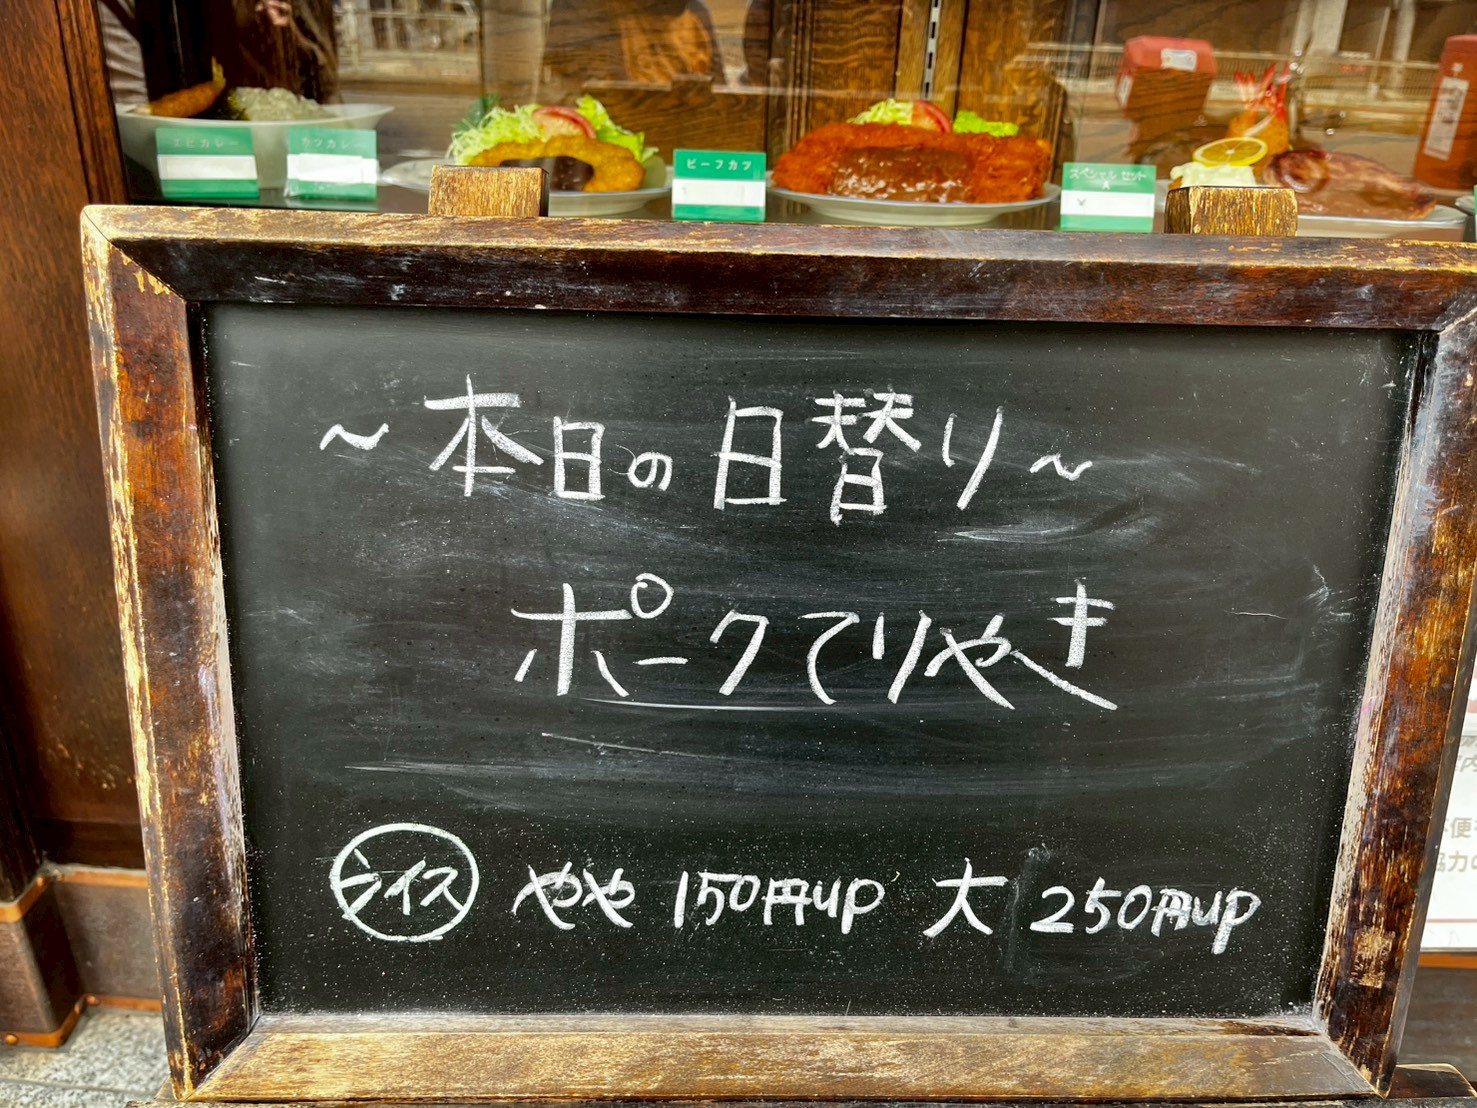 エビカレー
カツカレー
ビーフカツ
スペシャルセット
A
¥
～本日の日替り～
ポークてりやき
ライス やや 150円up 大 250円up